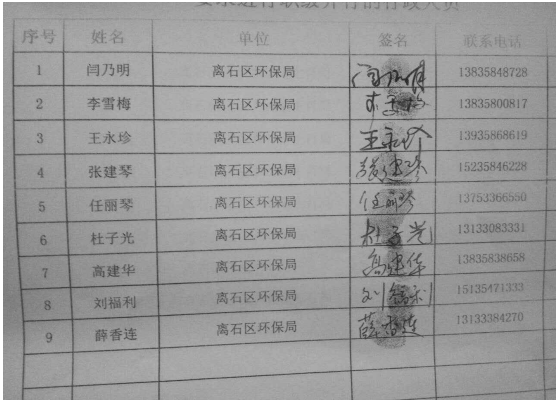 要求进行职级并行的行政人员
序号 姓名 单位 签名 联系电话
1 闫乃明 离石区环保局 闫乃明 13835848728
2 李雪梅 离石区环保局 李雪梅 13835800817
3 王永珍 离石区环保局 王永珍 13935868619
4 张建琴 离石区环保局 张建琴 15235846228
5 任丽琴 离石区环保局 任丽琴 13753366550
6 杜子光 离石区环保局 杜子光 13133083331
7 高建华 离石区环保局 高建华 13835838658
8 刘福利 离石区环保局 刘福利 15135471333
9 薛香连 离石区环保局 薛香连 13133384270